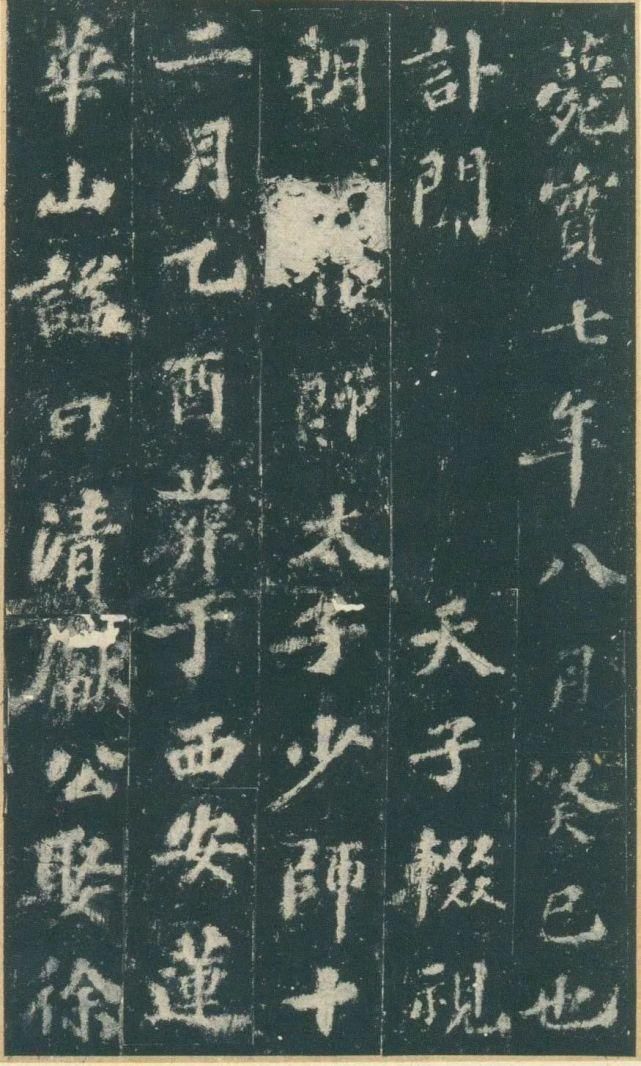 薨實七年八月癸巳也
訃聞天子輟視
朝賵太子少師十
二月乙酉葬于西安蓮
華山謚曰清獻公娶徐